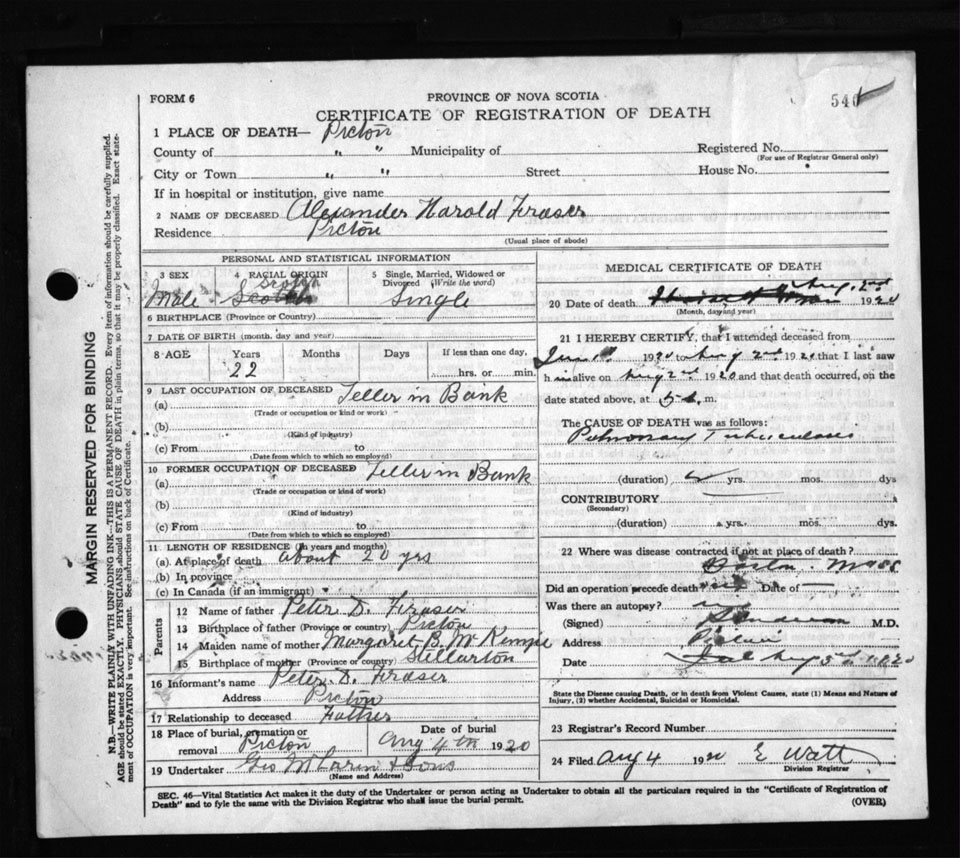 FORM 6
PROVINCE OF NOVA SCOTIA
540
CERTIFICATE OF REGISTRATION OF DEATH
1 PLACE OF DEATH— Pictou
County of " " Municipality of Registered No.
(For use of Registrar General only)
City or Town " " Street House No.
If in hospital or institution, give name
2 NAME OF DECEASED Alexander Harold Fraser
Residence Pictou
(Usual place of abode)
PERSONAL AND STATISTICAL INFORMATION
3 SEX
Male
4 RACIAL ORIGIN
Scotch
5 Single, Married, Widowed or
Divorced (Write the word)
Single
6 BIRTHPLACE (Province or Country)
7 DATE OF BIRTH (month, day and year)
8 AGE Years Months Days If less than one day,
22 hrs. or min.
9 LAST OCCUPATION OF DECEASED
(a) Teller in Bank
(Trade or occupation or kind or work)
(b)
(Kind of industry)
(c) From to
(Date from which to which so employed)
10 FORMER OCCUPATION OF DECEASED
(a) Teller in Bank
(Trade or occupation or kind of work)
(b)
(Kind of industry)
(c) From to
(Date from which to which so employed)
11 LENGTH OF RESIDENCE (In years and months)
(a) At place of death about 20 yrs
(b) In province
(c) In Canada (if an immigrant)
Parents
12 Name of father Peter D. Fraser
13 Birthplace of father (Province or country) Pictou
14 Maiden name of mother Margaret B. McKenzie
15 Birthplace of mother (Province or country) Stellarton
16 Informant's name Peter D. Fraser
Address Pictou
17 Relationship to deceased Father
18 Place of burial, cremation or
removal Pictou
Date of burial
Aug 4th 1920
19 Undertaker Geo & Sons
(Name and Address)
MEDICAL CERTIFICATE OF DEATH
20 Date of death Aug. 2nd 1920
(Month, day and year)
21 I HEREBY CERTIFY, that I attended deceased from
1920 to Aug 2nd 1920 that I last saw
h im alive on Aug 2nd 1920 and that death occurred, on the
date stated above, at 5 m.
The CAUSE OF DEATH was as follows:
Pulmonary Tuberculosis
(duration) yrs. mos. dys
CONTRIBUTORY
(Secondary)
(duration) yrs. mos. dys.
22 Where was disease contracted if not at place of death?
Boston Mass
Did an operation precede death? Date of
Was there an autopsy? no
(Signed) M.D.
Address Pictou
Date Aug 1920
State the Disease causing Death, or in death from Violent Causes, state (1) Means and Nature of
Injury, (2) whether Accidental, Suicidal or Homicidal.
23 Registrar's Record Number
24 Filed Aug 4 1920 E Watt
Division Registrar
SEC. 46—Vital Statistics Act makes it the duty of the Undertaker or person acting as Undertaker to obtain all the particulars required in the "Certificate of Registration of
Death" and to fyle the same with the Division Registrar who shall issue the burial permit. (OVER)
MARGIN RESERVED FOR BINDING
N.B.—WRITE PLAINLY WITH UNFADING INK—THIS IS A PERMANENT RECORD. Every item of information should be carefully supplied.
AGE should be stated EXACTLY. PHYSICIANS should STATE CAUSE OF DEATH in plain terms, so that it may be properly classified. Exact state-
ment of OCCUPATION is very important. See instructions on back of Certificate.